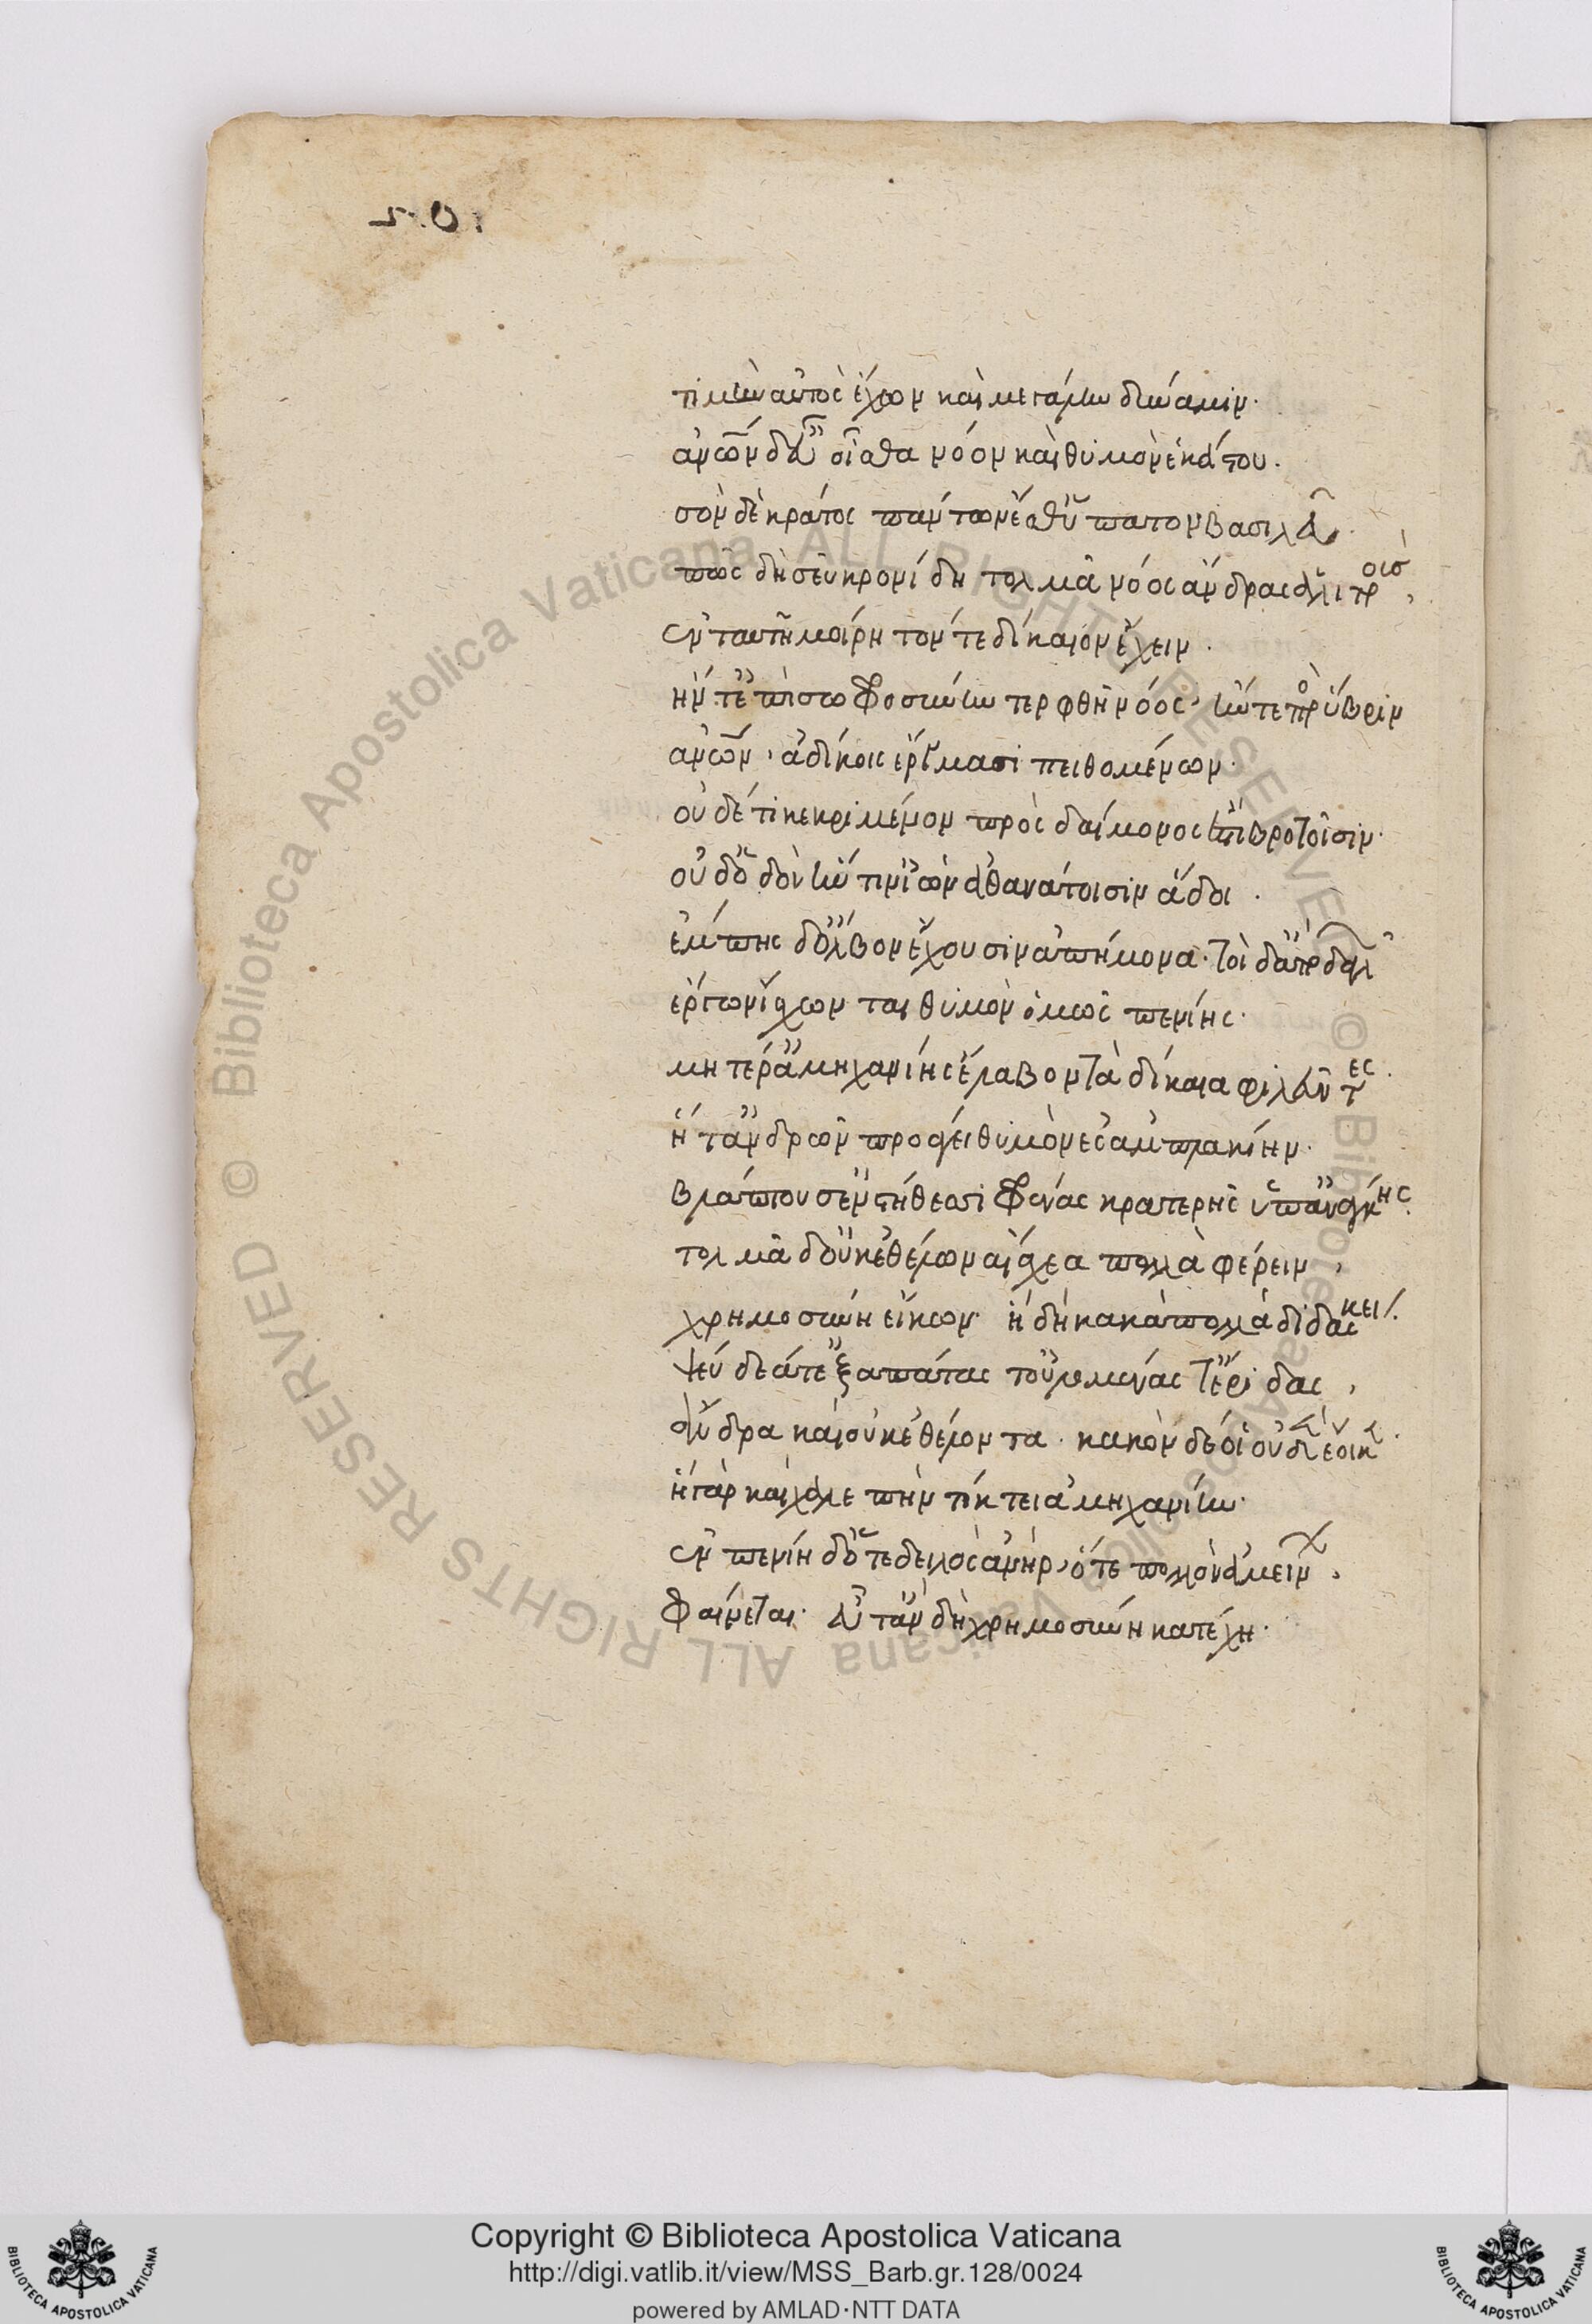 τιμὴν αὐτὸς ἔχων καὶ μεγάλην δύναμιν·
ἀνθρώπων δ' εὖ οἶσθα νόον καὶ θυμὸν ἑκάστου·
σὸν δὲ κράτος πάντων ἔσθ' ὕπατον βασιλεῦ·
πῶς δὴ σεῦ κρονίδη τολμᾷ νόος ἄνδρας ἀλιτροὺς,
ἐν ταυτῇ μοίρῃ τόν τε δίκαιον ἔχειν·
ἤν τ' ἐπὶ σωφροσύνην τερφθῇ νόος, ἤν τε πρὸς ὕβριν
ἀνθρώπων, ἀδίκοις ἔργμασι πειθομένων·
οὐδέ τι κεκριμένον πρὸς δαίμονος ἐπὶ βροτοῖσιν·
οὐδ' ὁδὸν ἥν τιν' ἰὼν ἀθανάτοισιν ἅδοι·
ἔμπης δ' ὄλβον ἔχουσιν ἀπήμονα· τοὶ δ' ἀπὸ δειλῶν
ἔργων ἴσχονται θυμὸν ὅμως πενίης·
μητέρ' ἀμηχανίης ἔλαβον τὰ δίκαια φιλεῦντες·
ἥ τ' ἀνδρῶν προάγει θυμὸν ἐς ἀμπλακίην·
βλάπτουσ' ἐν στήθεσσι φρένας κρατερῆς ὑπ' ἀνάγκης·
τολμᾷ δ' οὐκ ἐθέλων αἴσχεα πολλὰ φέρειν,
χρημοσύνῃ εἴκων· ἣ δὴ κακὰ πολλὰ διδάσκει·
ψεύδεά τ' ἐξαπάτας τ' οὐλομένας τ' ἔριδας,
ἄνδρα καὶ οὐκ ἐθέλοντα· κακὸν δέ οἱ οὐδὲν ἔοικε·
ἣ γὰρ καὶ χαλεπὴν τίκτει ἀμηχανίην·
ἐν πενίῃ δ' ὅ τε δειλὸς ἀνὴρ, ὅ τε πολλὸν ἀμείνων,
φαίνεται· εὖτ' ἂν δὴ χρημοσύνη κατέχῃ·
Copyright © Biblioteca Apostolica Vaticana
http://digi.vatlib.it/view/MSS_Barb.gr.128/0024
powered by AMLAD·NTT DATA
BIBLIOTECA APOSTOLICA VATICANA
BIBLIOTECA APOSTOLICA VATICANA
© Biblioteca Apostolica Vaticana ALL RIGHTS RESERVED
© Biblioteca Apostolica Vaticana ALL RIGHTS RESERVED